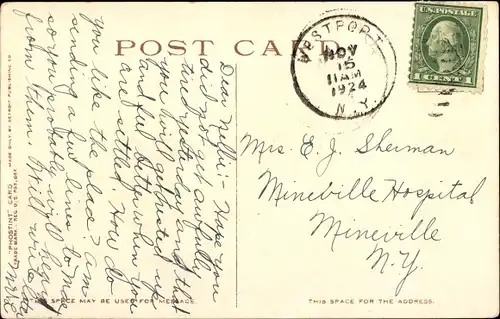 POST CARD
WESTPORT
NOV
15
11 AM
1924
N.Y.
U.S. POSTAGE
1 CENT 1
Dear Nellie:- Hope you
did not get awfully
tired yesterday and that
you will get rested up
and feel better when you
are settled. How do
you like the place? am
sending a few lines to
so you probably will hear
from them. Will write
Mrs. E. J. Sherman
Mineville Hospital
Mineville
N.Y.
"PHOSTINT" CARD
MADE ONLY BY DETROIT PUBLISHING CO.
TRADE MARK, REG. U.S. PAT. OFF.
THIS SPACE MAY BE USED FOR MESSAGE.
THIS SPACE FOR THE ADDRESS.